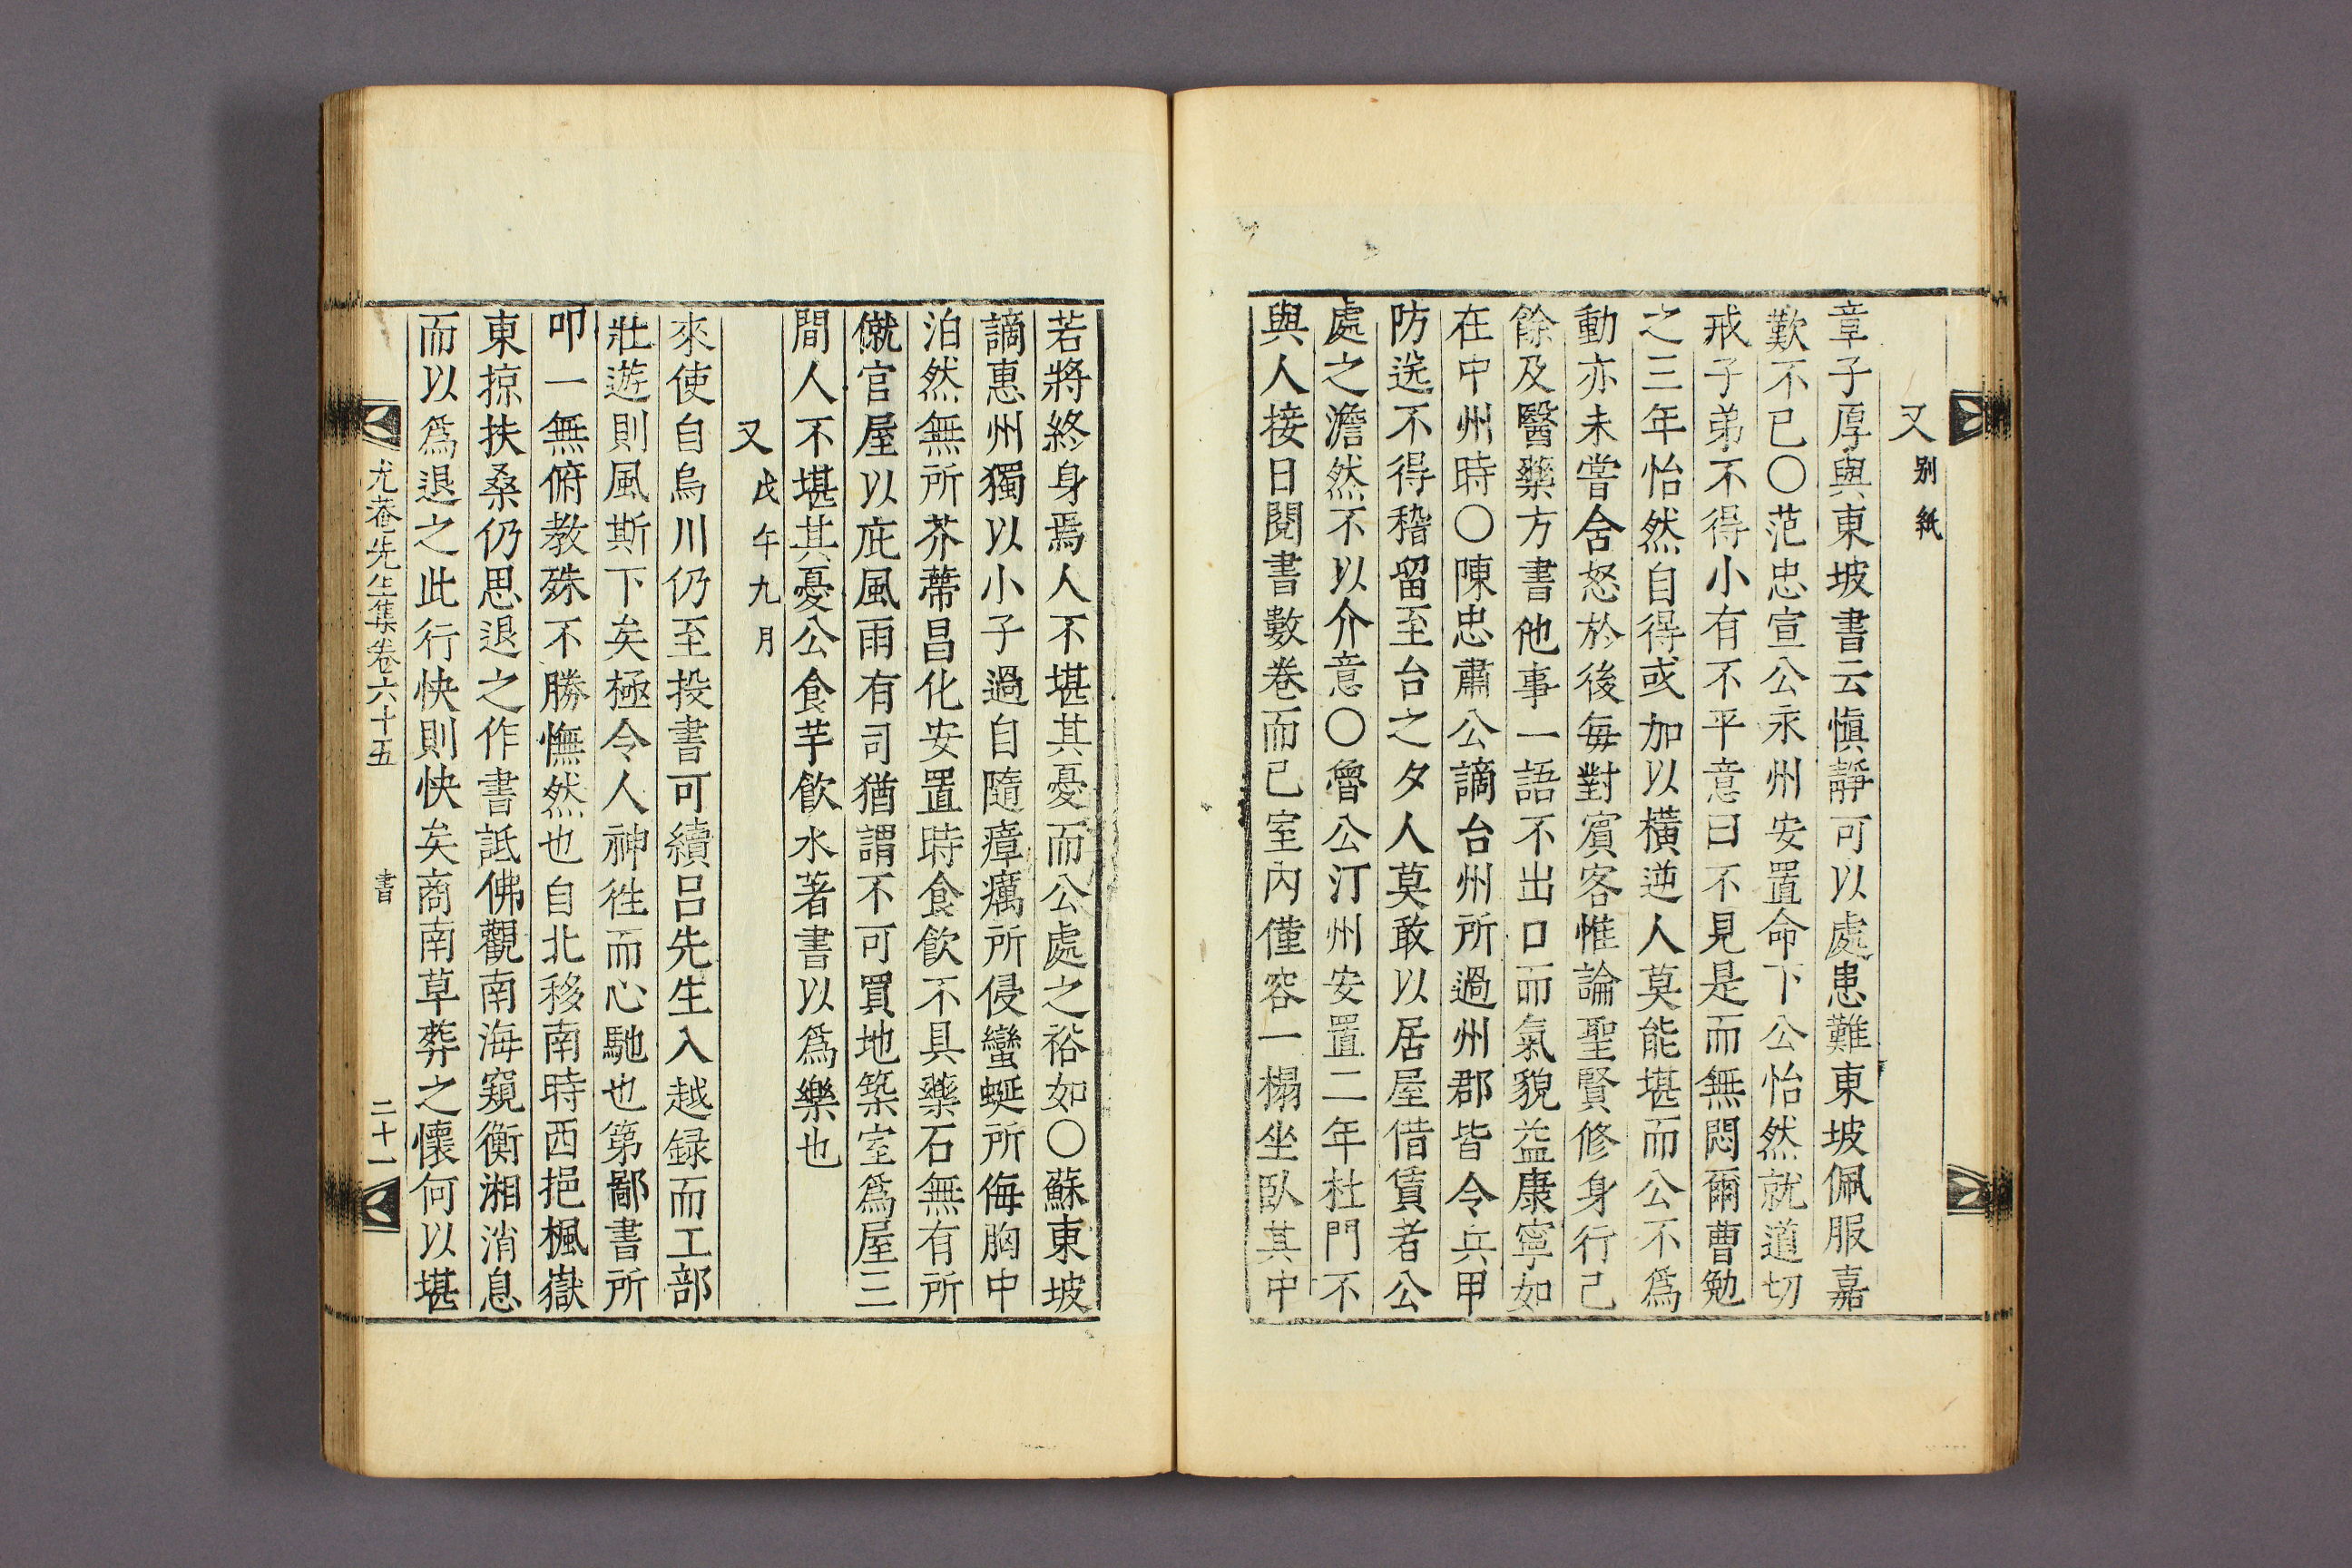 又別紙
章子厚與東坡書云愼靜可以處患難東坡佩服嘉
歎不已○范忠宣公永州安置命下公怡然就道切
戒子弟不得小有不平意曰不見是而無悶爾曹勉
之三年怡然自得或加以橫逆人莫能堪而公不爲
動亦未嘗含怒於後每對賓客惟論聖賢修身行己
餘及醫藥方書他事一語不出口而氣貌益康寧如
在中州時○陳忠肅公謫台州所過州郡皆令兵甲
防送不得稽留至台之夕人莫敢以居屋借賃者公
處之澹然不以介意○魯公汀州安置二年杜門不
與人接日閱書數卷而已室內僅容一榻坐臥其中
若將終身焉人不堪其憂而公處之裕如○蘇東坡
謫惠州獨以小子過自隨瘴癘所侵蠻蜒所侮胸中
泊然無所芥蔕昌化安置時食飮不具藥石無有所
僦官屋以庇風雨有司猶謂不可買地築室爲屋三
間人不堪其憂公食芋飮水著書以爲樂也
又戊午九月
來使自烏川仍至投書可續呂先生入越録而工部
壯遊則風斯下矣極令人神徃而心馳也第鄙書所
叩一無俯教殊不勝憮然也自北移南時西挹楓嶽
東掠扶桑仍思退之作書詆佛觀南海窺衡湘消息
而以爲退之此行快則快矣商南草葬之懷何以堪
尤菴先生集卷六十五 書 二十一